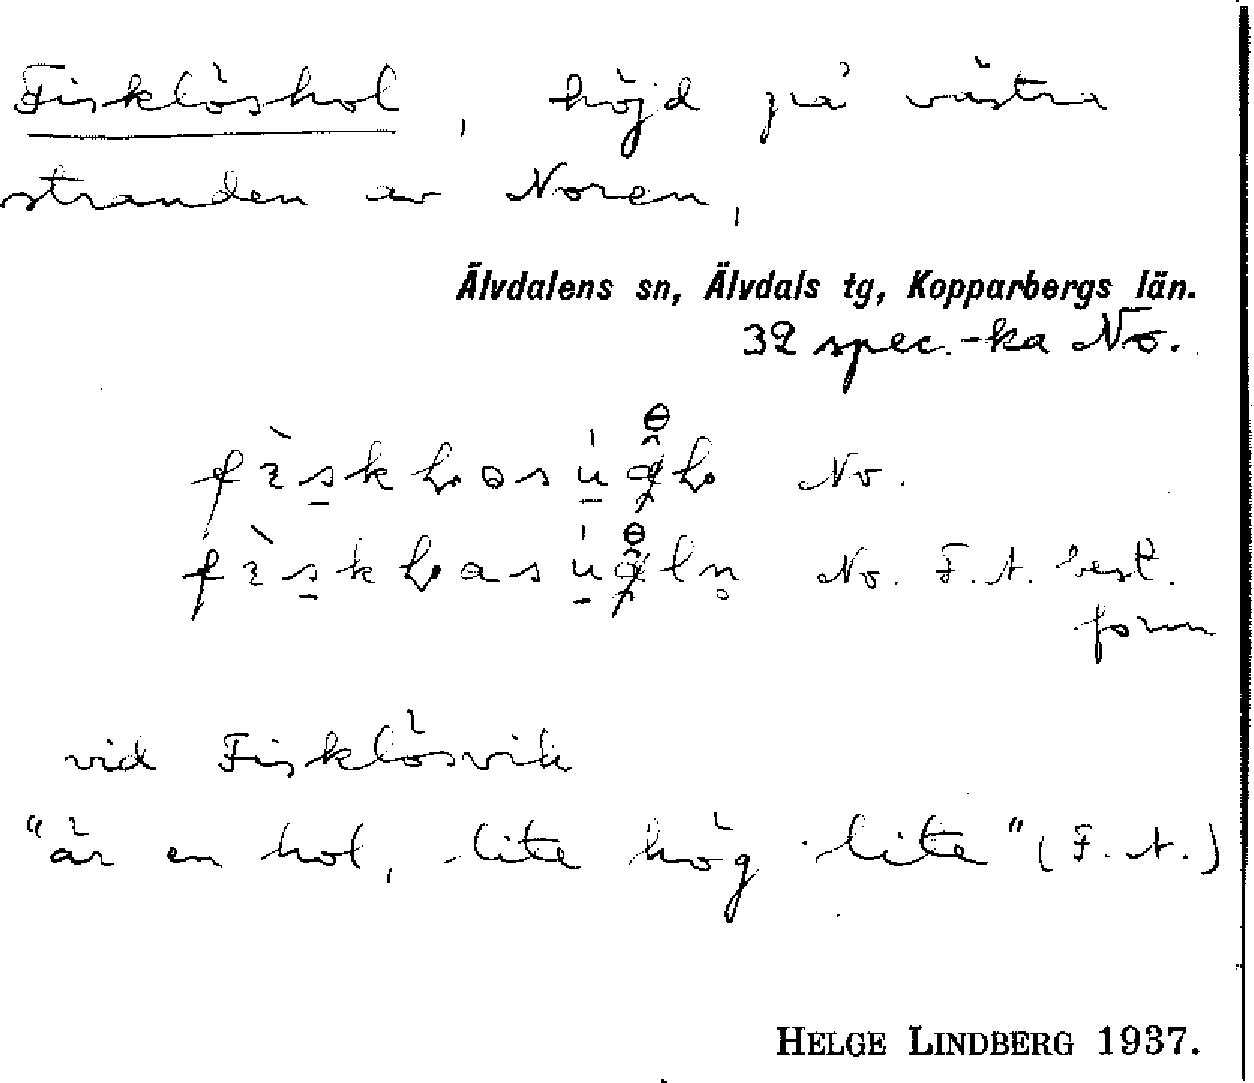 Fisklöshol, höjd på västra
stranden av Noren,
Älvdalens sn, Älvdals tg, Kopparbergs län.
32 spec.-ka No.
No.
No. F. A. best.
form
vid Fisklösvik
"är en hol, lite hög lite" (F. A.)
HELGE LINDBERG 1937.